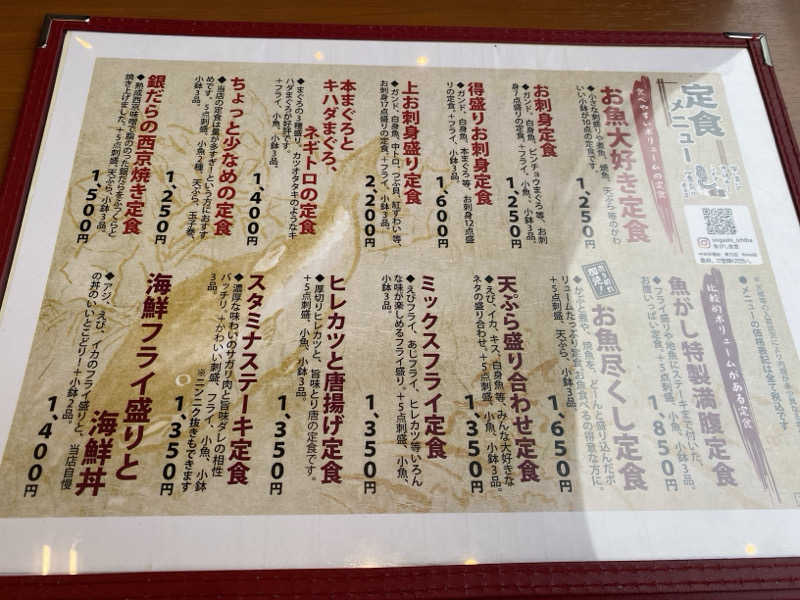 定食
メニュー
uogashi_ichiba
食べやすいボリュームの定食
お魚大好き定食
◆小さな刺盛りや煮魚、焼魚、天ぷら等のかわ
いい小鉢が10点の定食です。
1,250円
お刺身定食
◆ガンド、白身魚、ビンチョウまぐろ等、お刺
身7点盛りの定食。+フライ、小魚、小鉢3品。
1,250円
得盛りお刺身定食
◆ガンド、白身魚、本まぐろ等、お刺身12点盛
りの定食。+フライ、小鉢3品。
1,600円
上お刺身盛り定食
◆ガンド、白身魚、中トロ、つぶ貝、紅ずわい等、
お刺身17点盛りの定食。+フライ、小鉢3品。
2,200円
本まぐろと
キハダまぐろ、
ネギトロの定食
◆まぐろの3種盛り。カツオタタキのようなキ
ハダまぐろが好評です。
+フライ、小魚、小鉢3品。
1,400円
ちょっと少なめの定食
◆当店の定食は量が多すぎ!という方におすす
めです。5点刺盛、小魚2種、天ぷら、玉子巻、
小鉢3品。
1,250円
銀だらの西京焼き定食
◆熟成西京味噌で脂ののった銀だらをふっくらと
焼き上げました。+5点刺盛、天ぷら、小鉢3品。
1,500円
メニューの価格表記は全て税込です
比較的ボリュームがある定食
魚がし特製満腹定食
◆フライ盛りや地魚にステーキまで付いた、
お腹いっぱい定食。+5点刺盛、小魚、小鉢3品。
1,850円
お魚尽くし定食
◆かぶと煮や、焼魚を、どーんと盛り込んだボ
リュームたっぷり定食。お魚食べるの得意な方に。
+5点刺盛、天ぷら、小鉢
1,650円
天ぷら盛り合わせ定食
◆えび、イカ、キス、白身魚等、みんな大好きな
ネタの盛り合わせ。+5点刺盛、小魚、小鉢3品。
1,350円
ミックスフライ定食
◆えびフライ、あじフライ、ヒレカツ等いろん
な味が楽しめるフライ盛り。+5点刺盛、小魚、
小鉢3品。
1,350円
ヒレカツと唐揚げ定食
◆厚切りヒレカツと、旨味とり唐の定食です。
+5点刺盛、小魚、小鉢3品。
1,350円
スタミナステーキ定食
◆濃厚な味わいのサガリ肉と旨味ダレの相性
バッチリ。+かわいい刺盛、フライ、小魚、小鉢
3品。
※ニンニク抜きもできます
1,350円
海鮮フライ盛りと
海鮮丼
◆アジ、えび、イカのフライ盛りと、当店自慢
の丼のいいとこどり!+小鉢2品。
1,400円